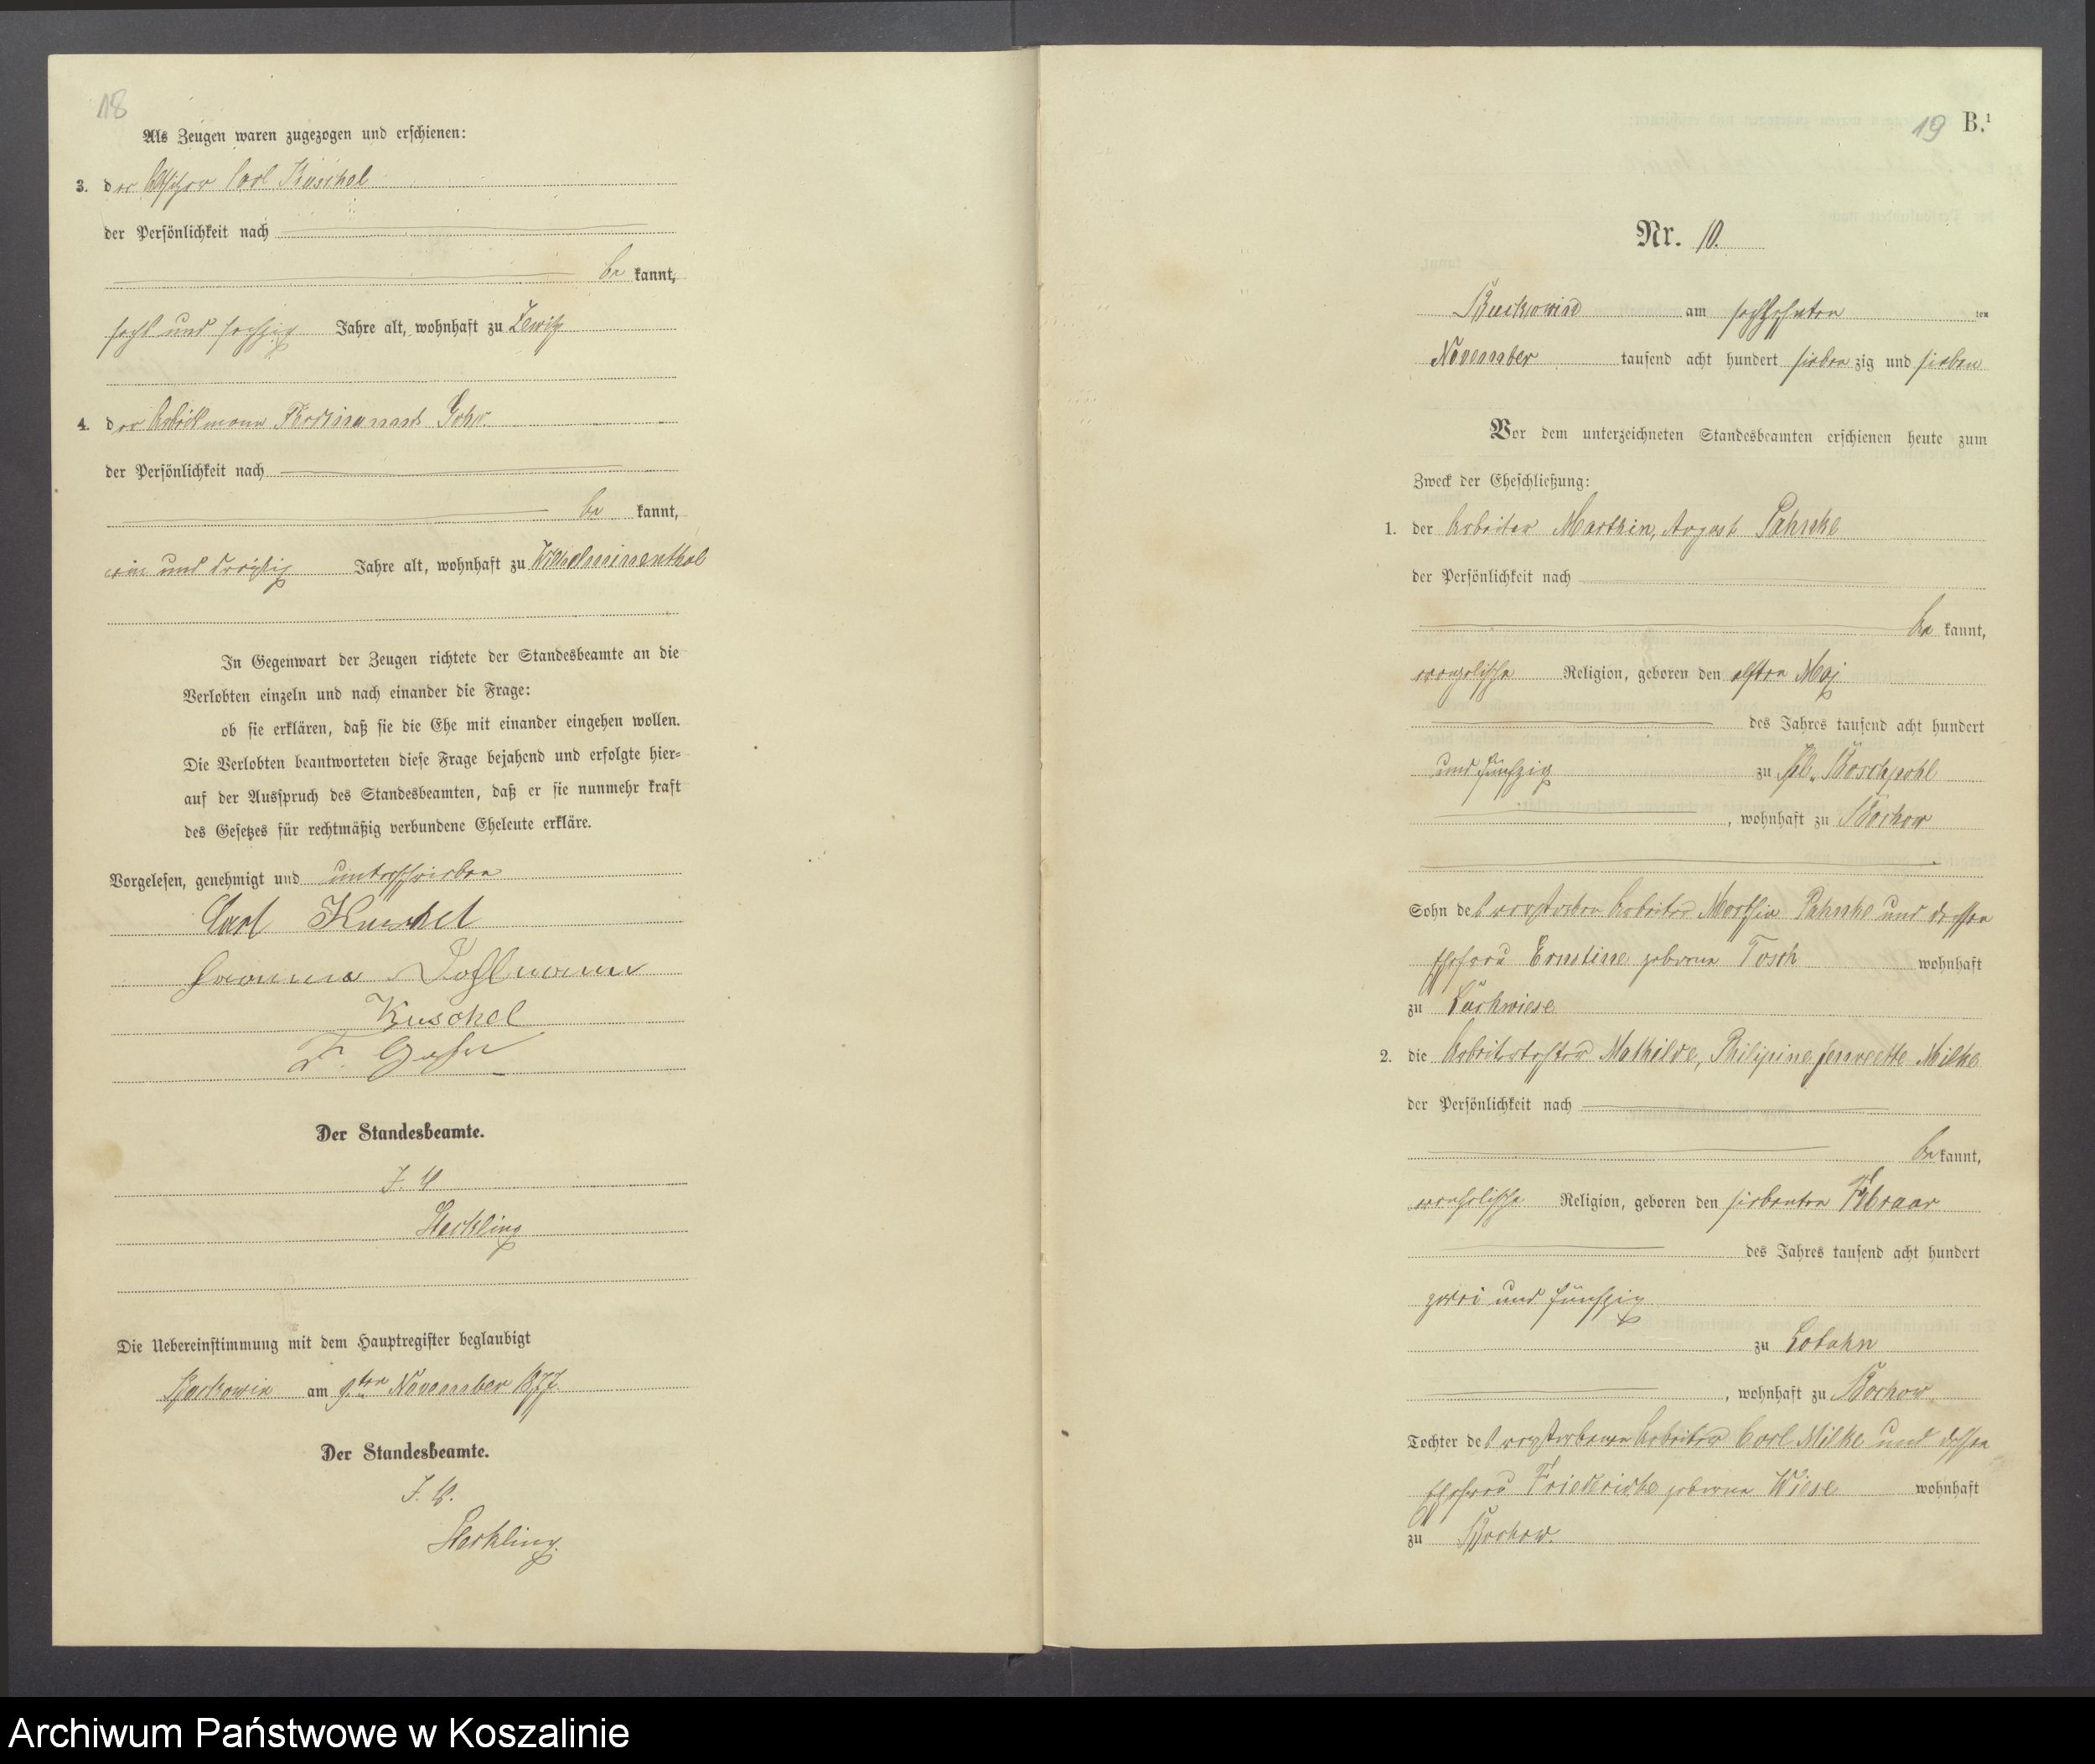 18
Als Zeugen waren zugezogen und erschienen:
3. der Besitzer Carl Kuschel
der Persönlichkeit nach
be kannt,
sechs und sechzig Jahre alt, wohnhaft zu Zewitz
4. der Arbeitsmann Ferdinand Gohr
der Persönlichkeit nach
be kannt,
ein und dreißig Jahre alt, wohnhaft zu Wilhelminenthal
In Gegenwart der Zeugen richtete der Standesbeamte an die
Verlobten einzeln und nach einander die Frage:
ob sie erklären, daß sie die Ehe mit einander eingehen wollen.
Die Verlobten beantworteten diese Frage bejahend und erfolgte hier=
auf der Ausspruch des Standesbeamten, daß er sie nunmehr kraft
des Gesetzes für rechtmäßig verbundene Eheleute erkläre.
Vorgelesen, genehmigt und unterschrieben
Carl Kuschel
Kuschel
F. Gohr
Der Standesbeamte.
J. V.
Die Uebereinstimmung mit dem Hauptregister beglaubigt
Buckowin am 9ten November 1877
Der Standesbeamte.
J. V.
19 B.1
Nr. 10.
Buckowin am sechzehnten ten
November tausend acht hundert sieben zig und sieben
Vor dem unterzeichneten Standesbeamten erschienen heute zum
Zweck der Eheschließung:
1. der Arbeiter Marthin, August Pahnke
der Persönlichkeit nach
be kannt,
evangelischer Religion, geboren den elften Maj
des Jahres tausend acht hundert
und fünfzig zu Kl. Boschpohl
, wohnhaft zu Bochow
Sohn des verstorbenen Arbeiter Marthin Pahnke und dessen
Ehefrau Ernstine geborene Tosch wohnhaft
zu Puschwiese
2. die Arbeitertochter Mathilde, Philipine, Jennette Milke
der Persönlichkeit nach
be kannt,
evangelischer Religion, geboren den siebenten Februar
des Jahres tausend acht hundert
zwei und fünfzig
zu Labuhn
, wohnhaft zu Bochow
Tochter des verstorbenen Arbeiter Carl Milke und dessen
Ehefrau Friedericke geborene Wiese wohnhaft
zu Bochow.
Archiwum Państwowe w Koszalinie